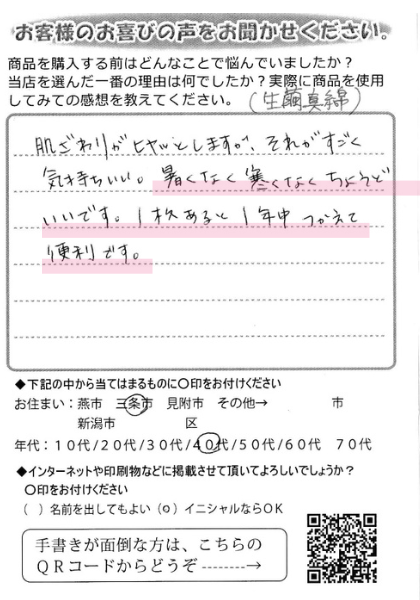 お客様のお喜びの声をお聞かせください。
商品を購入する前はどんなことで悩んでいましたか？
当店を選んだ一番の理由は何でしたか？実際に商品を使用
してみての感想を教えてください。
(生繭真綿)
肌ざわりがヒヤッとしますが、それがすごく
気持ちいい。暑くなく寒くなくちょうど
いいです。1枚あると1年中つかえて
便利です。
◆下記の中から当てはまるものに〇印をお付けください
お住まい：燕市 三条市 見附市 その他→ 市
新潟市 区
年代：１０代/２０代/３０代/４０代/５０代/６０代 ７０代
◆インターネットや印刷物などに掲載させて頂いてよろしいでしょうか？
〇印をお付けください
（ ）名前を出してもよい（〇）イニシャルならＯＫ
手書きが面倒な方は、こちらの
ＱＲコードからどうぞ -------->